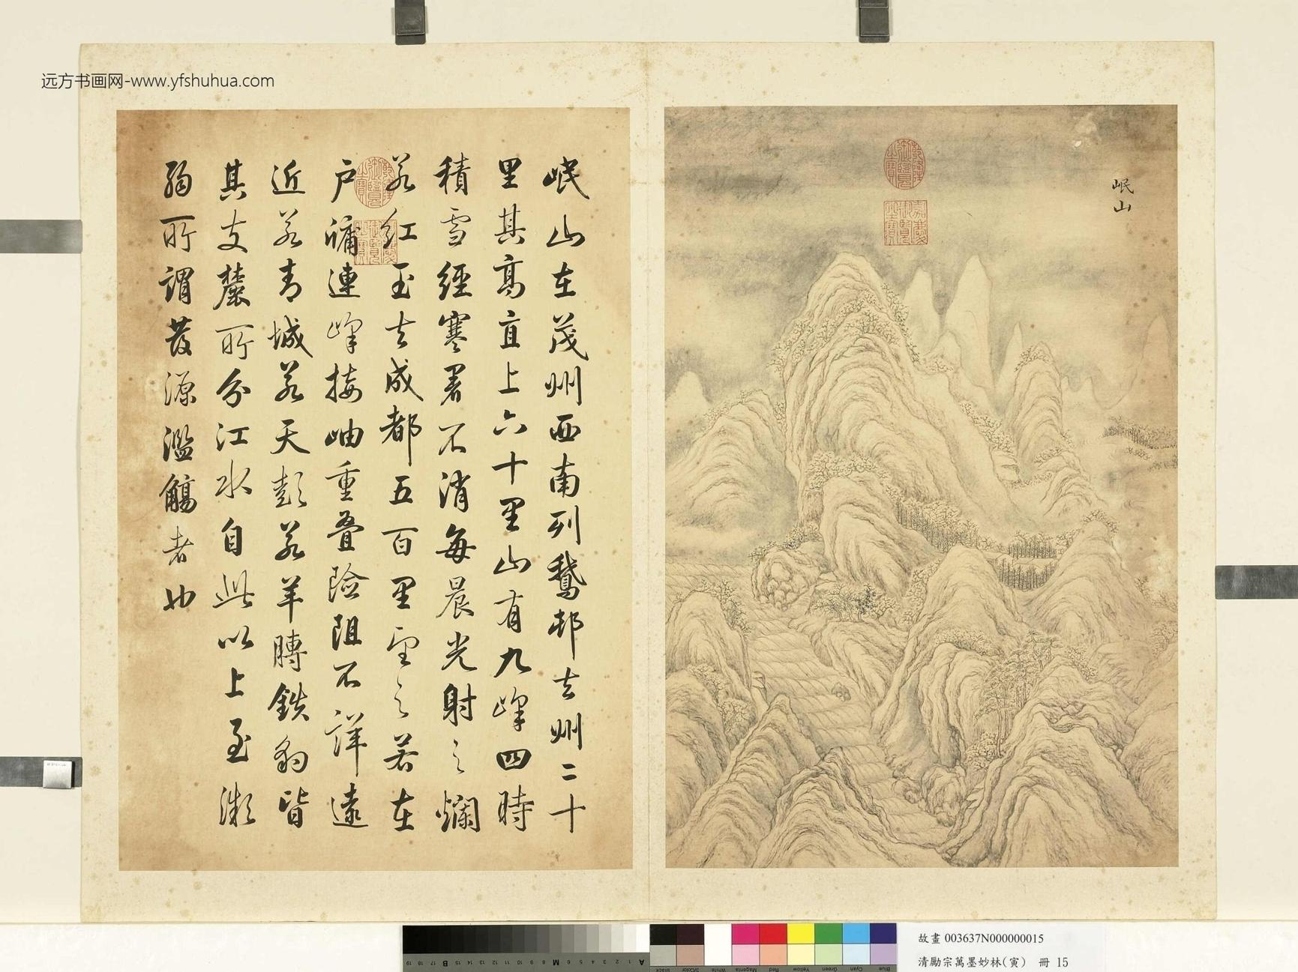 远方书画网-www.yfshuhua.com
岷山
岷山在茂州西南列鵝邨去州二十
里其高直上六十里山有九峰四時
積雪經寒暑不消每晨光射之爛
若紅玉去成都五百里望之若在
戶牖連峰接岫重疊險阻不詳遠
近若青城若天彭若羊膊鐵豹皆
其支麓所分江水自此以上至微
弱所謂發源濫觴者也
故畫 003637N000000015
清勵宗萬墨妙林(寅) 冊 15